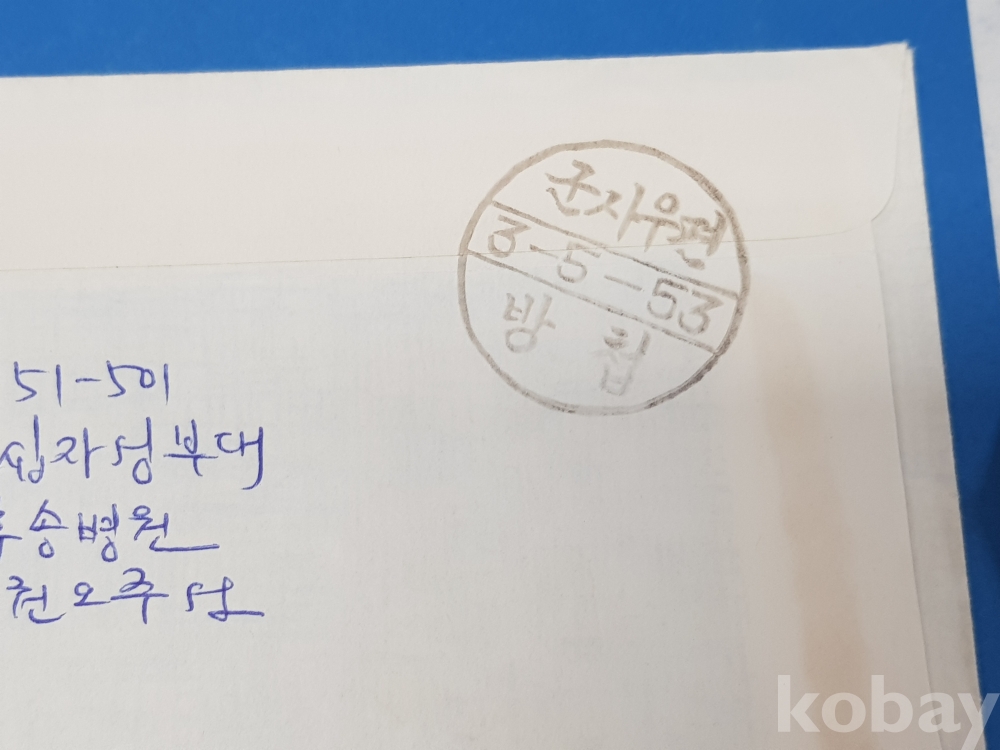 군사우편
3-5-53
방첩
51-501
십자성부대
후송병원
권오주
kobay